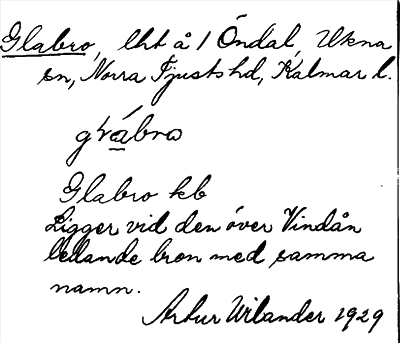 Glabro, lht å 1 Öndal, Ukna
sn, Norra Tjusts hd, Kalmar l.
gråbro
Glabro kb
Ligger vid den över Vindån
ledande bron med samma
namn.
Artur Wilander 1929